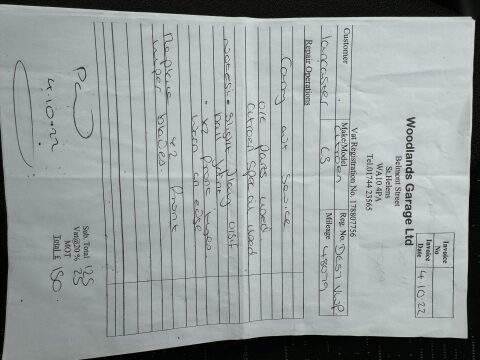 Woodlands Garage Ltd
Belmont Street
St.Helens
WA10 4PA
Tel.01744 23565
Vat Registration No. 178807756
Invoice
No
Invoice
Date
4.10.22
Customer
Make/Model
Reg. No.
Mileage
Lancaster
Citroen C3
Repair Operations
Carry out Service
OE parts used
Citroen Spec oil used
notes: slight play O/S/F
ball joint
x2 front tyres
worn on edge
Replace x2 front
wiper blades
Paid
4.10.22
Sub Total 125
Vat@20% 25
MOT
Total £ 150